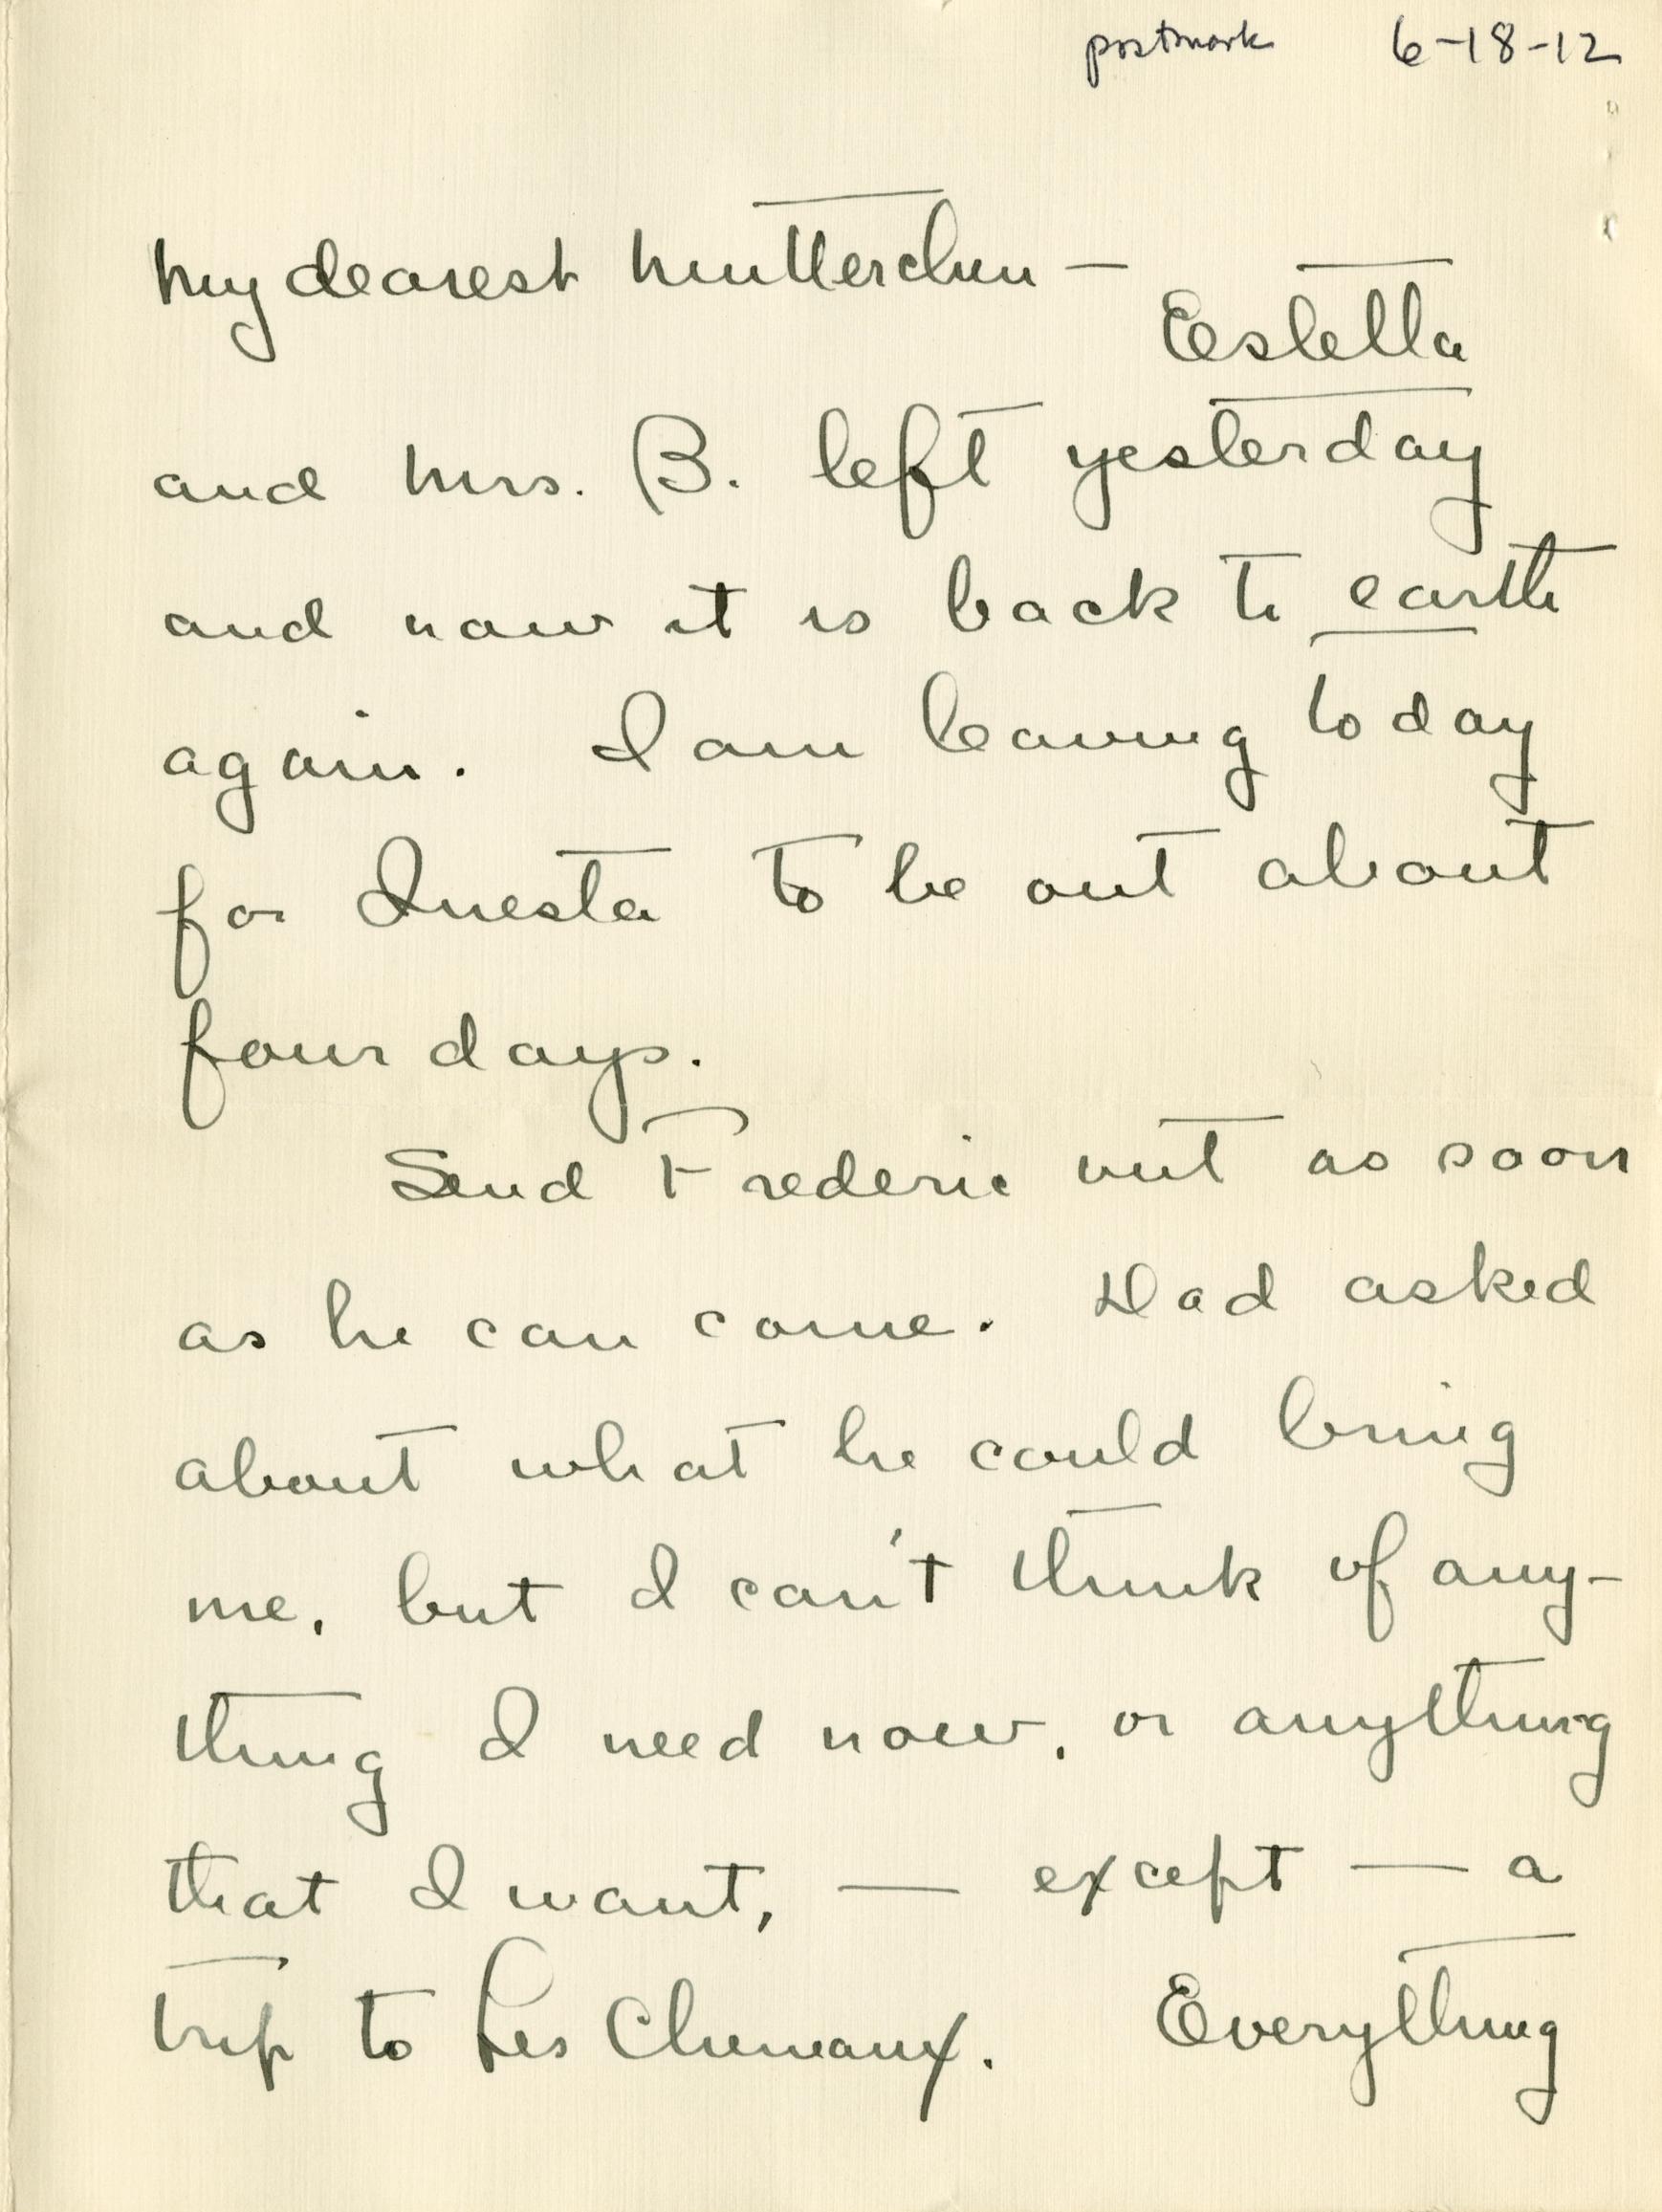 postmark 6-18-12
My dearest Mutterchen —
Estella
and Mrs. B. left yesterday
and now it is back to earth
again. I am leaving today
for Questa to be out about
four days.
Send Frederic out as soon
as he can come. Dad asked
about what he could bring
me, but I can't think of any-
thing I need now, or anything
that I want, — except — a
trip to Les Cheneaux. Everything